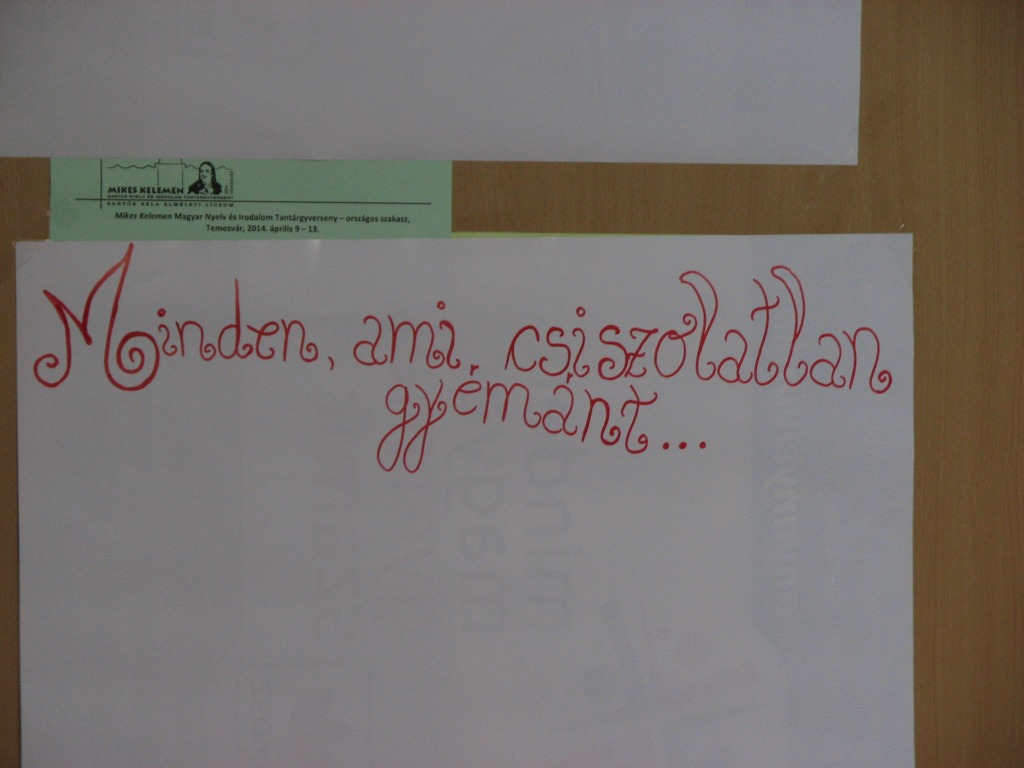 MIKES KELEMEN
MAGYAR NYELV ÉS IRODALOM TANTÁRGYVERSENY
BARTÓK BÉLA ELMÉLETI LÍCEUM
Mikes Kelemen Magyar Nyelv és Irodalom Tantárgyverseny – országos szakasz,
Temesvár, 2014. április 9 – 13.
Minden, ami csiszolatlan
gyémánt...